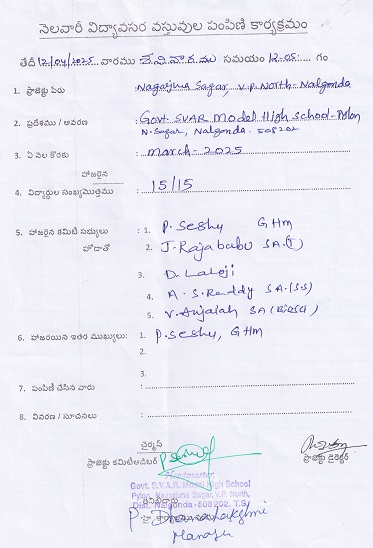 నెలవారీ విద్యావసర వస్తువుల పంపిణి కార్యక్రమం
తేదీ 12/04/2025 వారము శనివారము సమయం 12-05 గం
1. ప్రాజెక్టు పేరు : Nagarjuna Sagar, V.P. North-Nalgonda
2. ప్రదేశము / ఆవరణ : Govt. SVAR Model High School-Pylon
N. Sagar, Nalgonda. 508202
3. ఏ నెల కొరకు : march-2025
హాజరైన
4. విద్యార్థుల సంఖ్య/మొత్తము : 15/15
5. హాజరైన కమిటీ సభ్యులు : 1. P. Seshu GHM
హోదాతో 2. J. Rajababu SA.
3. D. Laleji
4. A. S. Reddy SA.(SS)
5. V. Anjaiah SA (Biosci)
6. హాజరయిన ఇతర ముఖ్యులు: 1. P. Seshu, GHM
2.
3.
7. పంపిణి చేసిన వారు :
8. వివరణ / సూచనలు :
చైర్మన్
ప్రాజెక్టు కమిటీ ప్రాజెక్టు డైరెక్టర్
Headmaster
Govt. S.V.A.R. Model High School
Pylon, Nagarjuna Sagar, V.P. North,
Dist. Nalgonda-508202. T.S.
P. Dhanalakshmi
Manager